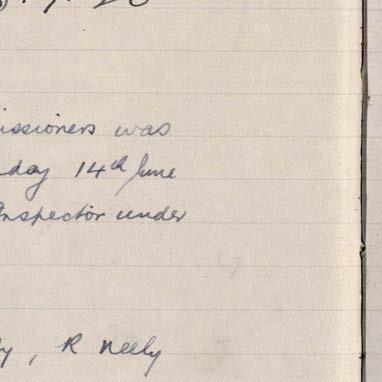 issioners was
day 14th June
Inspector under
y, R Neely